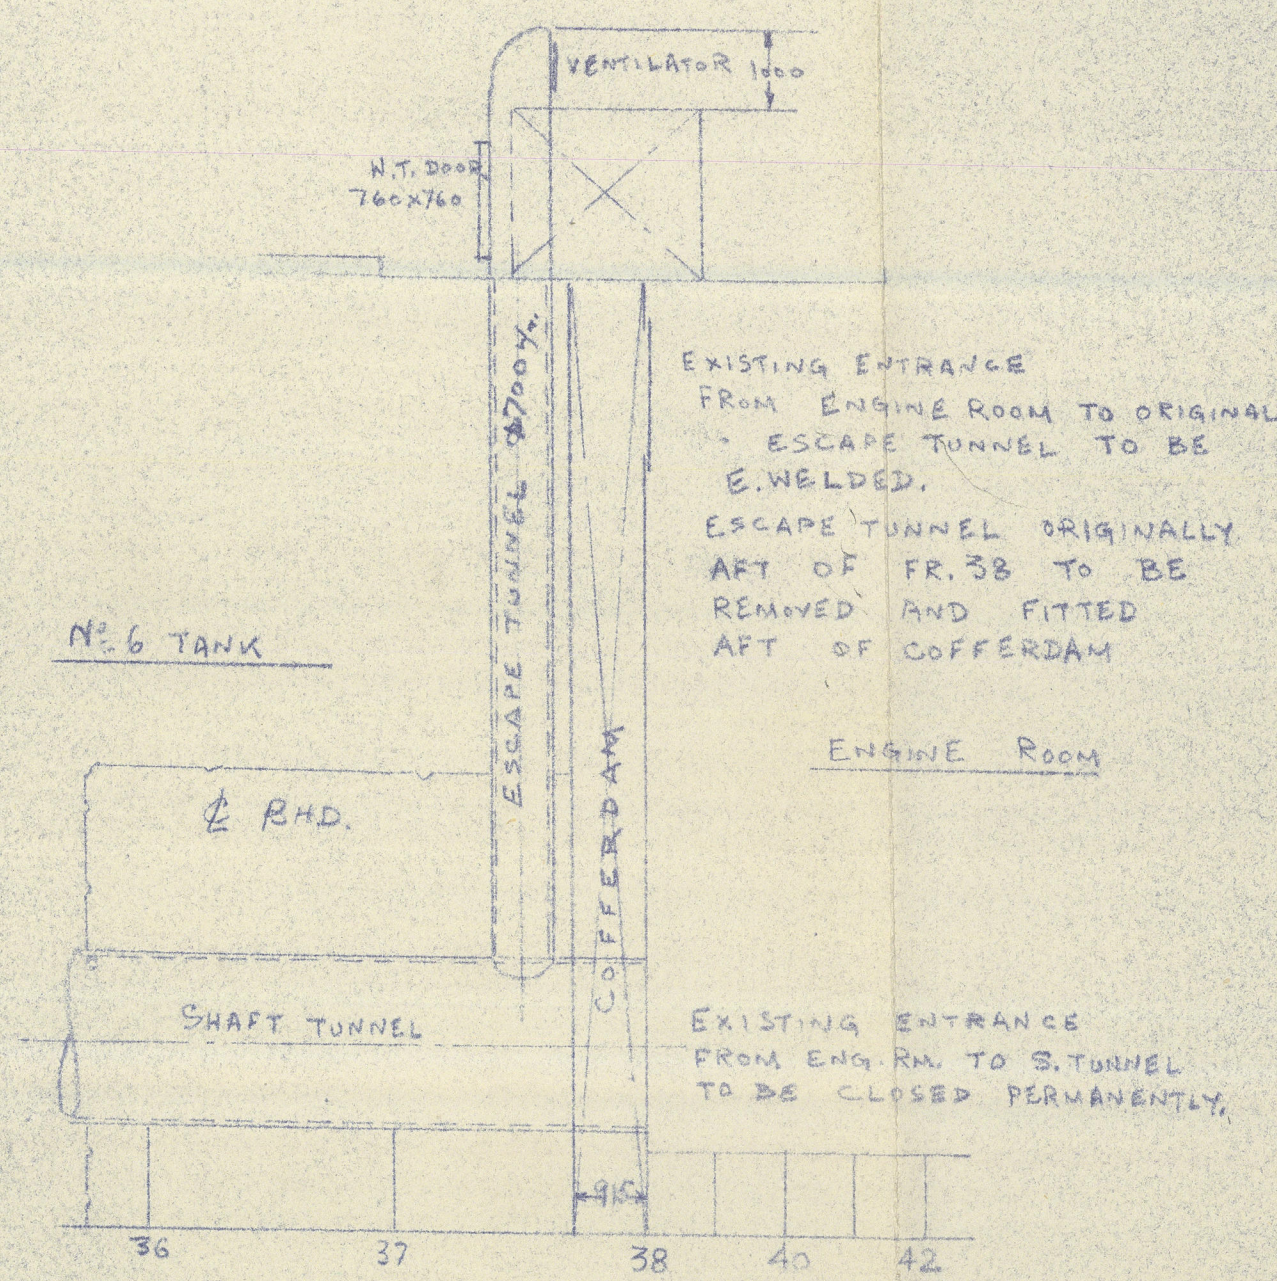 VENTILATOR 1000
W.T. DOOR
760X760
ESCAPE TUNNEL
EXISTING ENTRANCE
FROM ENGINE ROOM TO ORIGINAL
ESCAPE TUNNEL TO BE
E.WELDED.
ESCAPE TUNNEL ORIGINALLY
AFT OF FR.38 TO BE
REMOVED AND FITTED
AFT OF COFFERDAM
Nº 6 TANK
ENGINE ROOM
℄ BHD.
COFFERDAM
SHAFT TUNNEL
EXISTING ENTRANCE
FROM ENG.RM. TO S.TUNNEL
TO BE CLOSED PERMANENTLY.
915
36 37 38 40 42